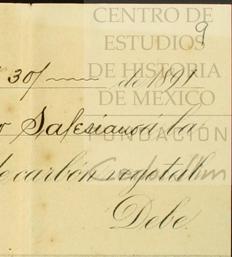 CENTRO DE
ESTUDIOS
9
DE HISTORIA
30/ de 1891
DE MEXICO
Salesianos á la
FUNDACIÓN
de carbón vegetal
Debe.